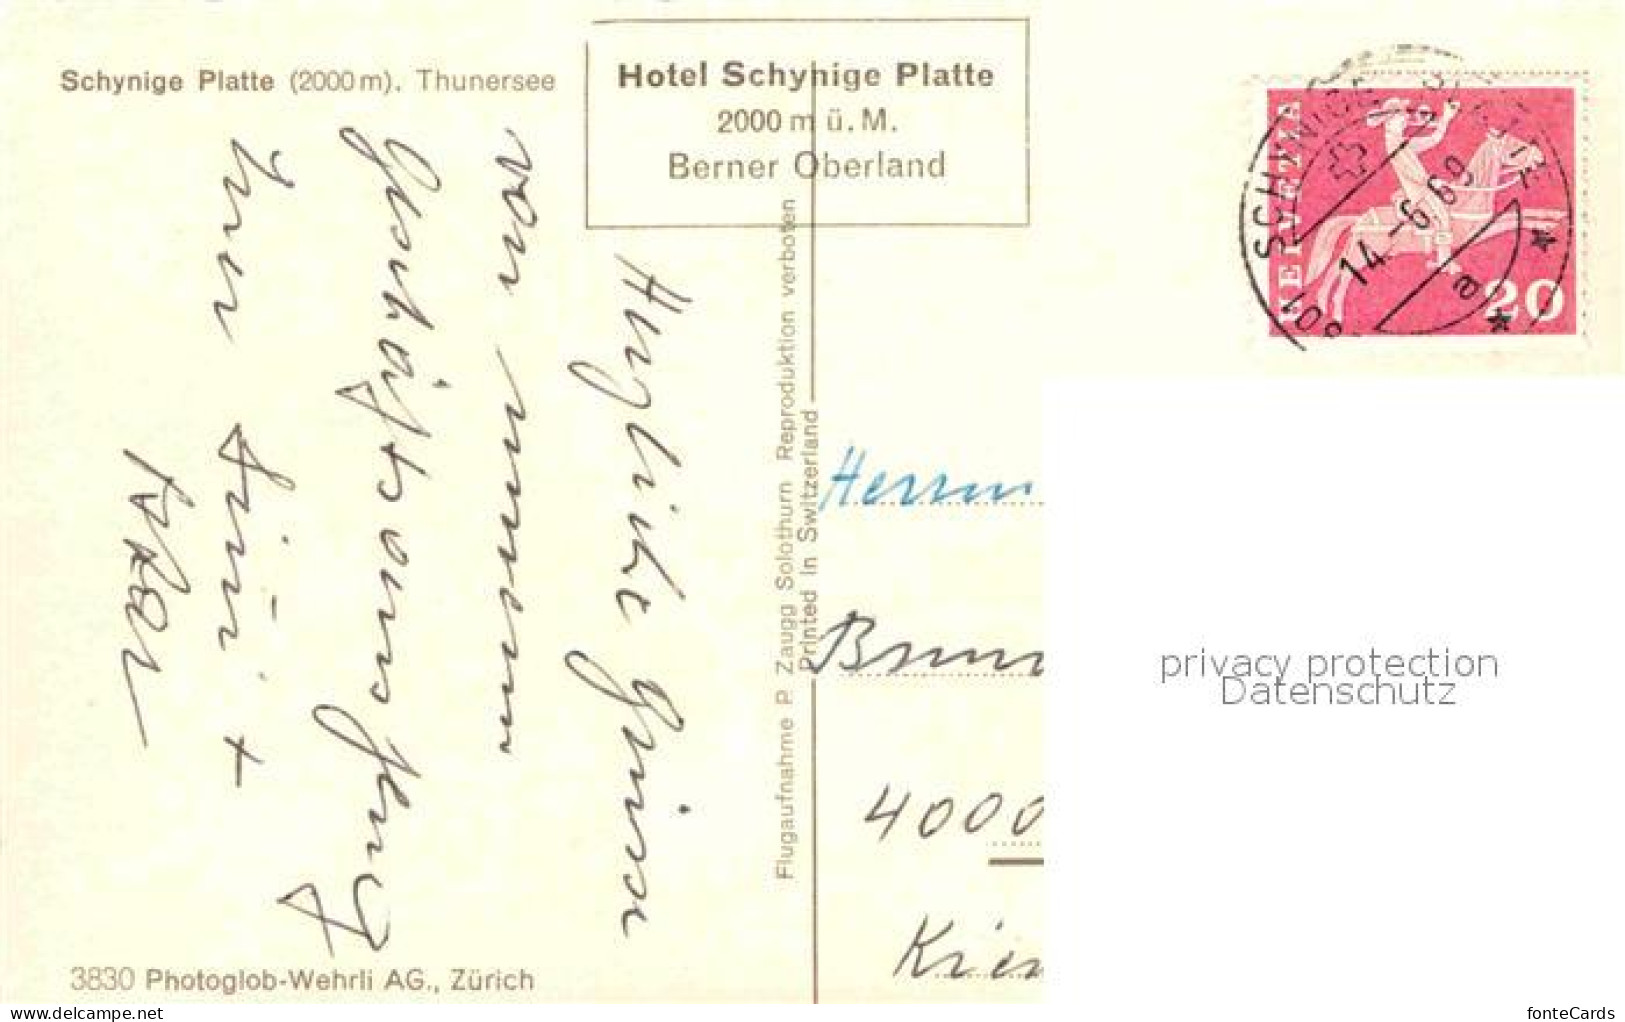 Schynige Platte (2000 m). Thunersee
Hotel Schynige Platte
2000 m ü. M.
Berner Oberland
HELVETIA
20
801 SCHYNIGE PLATTE
14.-6.69
a
Herzliche Grüsse
von unserem
Geschäftsausflug
+
Flugaufnahme P. Zaugg Solothurn Reproduktion verboten
Printed in Switzerland
Herrn
4000
privacy protection
Datenschutz
3830 Photoglob-Wehrli AG., Zürich
www.delcampe.net
fonteCards